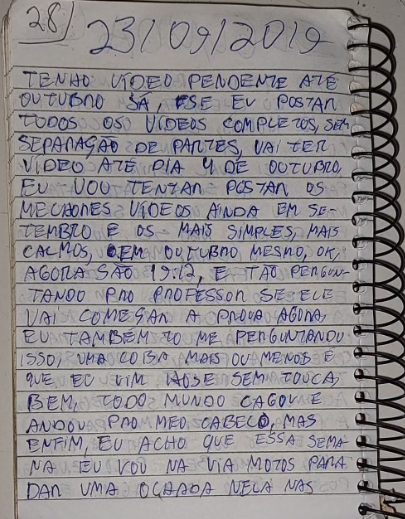 28
23/09/2019
TENHO VÍDEO PENDENTE ATÉ
OUTUBRO SÁ, SE EU POSTAR
TODOS OS VÍDEOS COMPLETOS, SEM
SEPARAÇÃO DE PARTES, VAI TER
VÍDEO ATÉ DIA 4 DE OUTUBRO,
EU VOU TENTAR POSTAR OS
MELHORES VÍDEOS AINDA EM SE-
TEMBRO E OS MAIS SIMPLES, MAIS
CALMOS, EM OUTUBRO MESMO, OK,
AGORA SÃO 19:12, E TÃO PERGUN-
TANDO PRO PROFESSOR SE ELE
VAI COMEÇAR A PROVA AGORA,
EU TAMBÉM TO ME PERGUNTANDO
ISSO, UMA COISA MAIS OU MENOS É
QUE EU VIM HOJE SEM TOUCA,
BEM, TODO MUNDO CAGOU E
ANDOU PRO MEU CABELO, MAS
ENFIM, EU ACHO QUE ESSA SEMA
NA EU VOU NA VIA MOTOS PARA
DAR UMA OLHADA NELA NAS